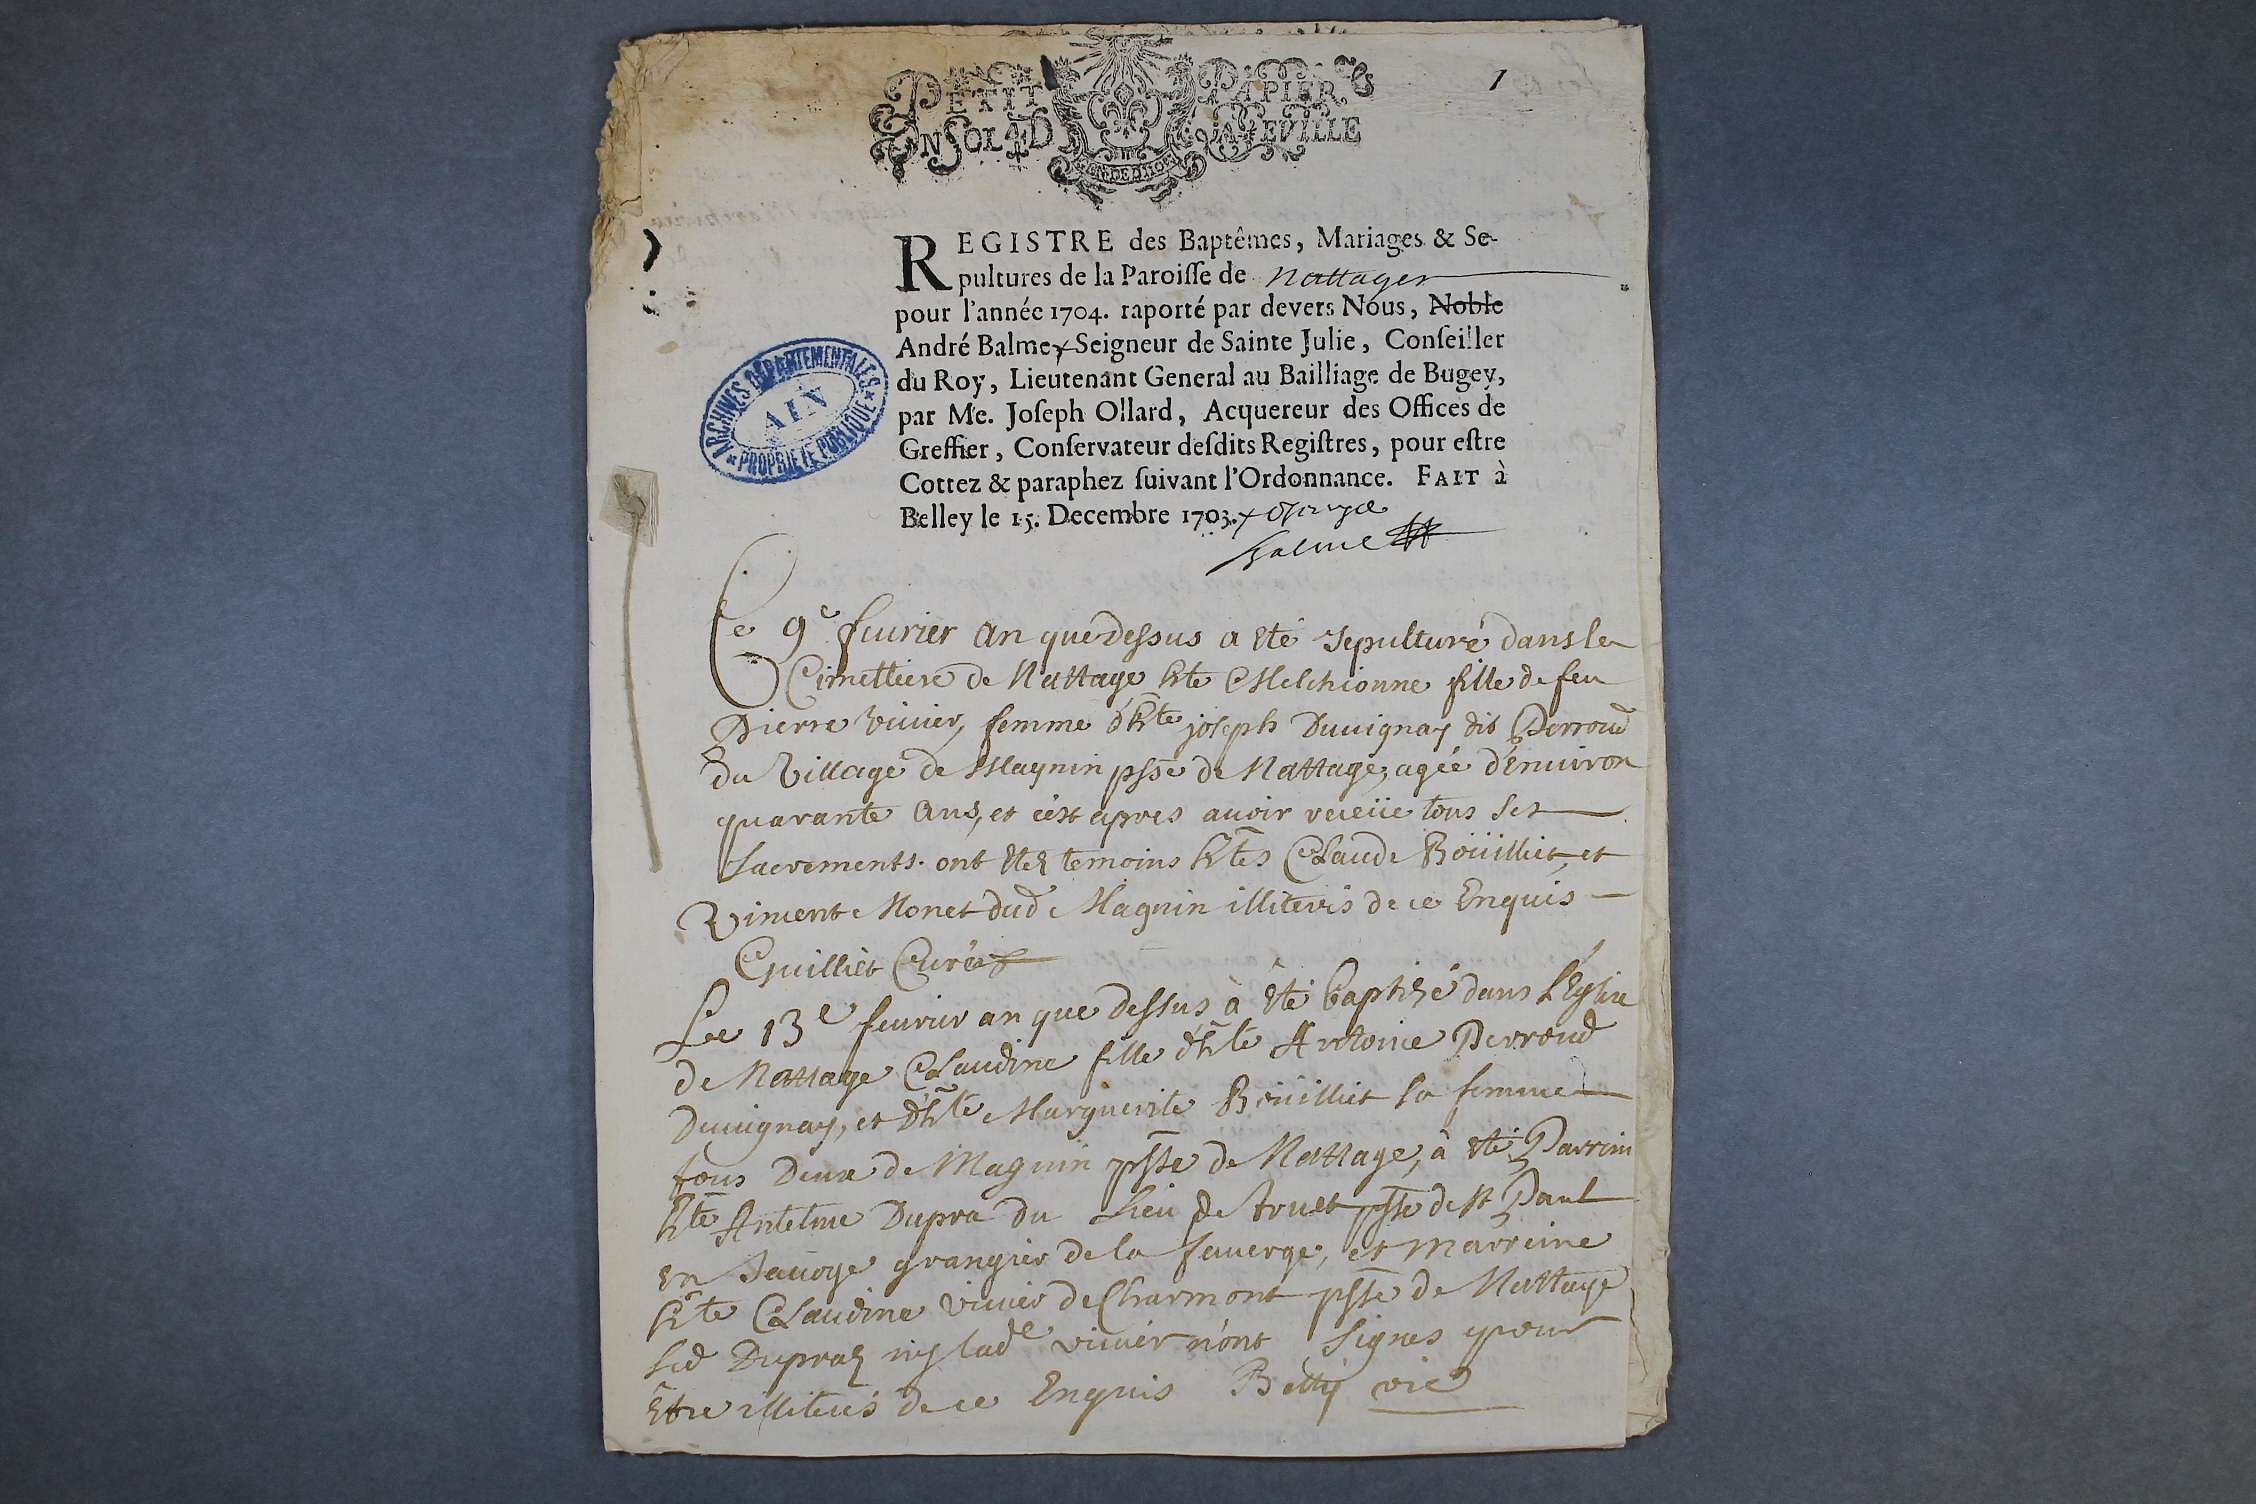 PETIT PAPIER
UN SOL 4D LA FEVILLE
1
REGISTRE des Baptêmes, Mariages & Se-
pultures de la Paroisse de Nattages
pour l'année 1704. raporté par devers Nous, Noble
André Balme, Seigneur de Sainte Julie, Conseiller
du Roy, Lieutenant General au Bailliage de Bugey,
par Me. Joseph Ollard, Acquereur des Offices de
Greffier, Conservateur desdits Registres, pour estre
Cottez & paraphez suivant l'Ordonnance. FAIT à
Belley le 15. Decembre 1703.
Balme
ARCHIVES DEPARTEMENTALES
AIN
PROPRIETE PUBLIQUE
Ce 9e feurier an que dessus a eté sepulturé dans le
Cimettiere de Nattage hte Melchionne fille de feu
Pierre viuier, femme d'hte joseph Duuignay dit Perroud
du Village de Magnin psse de Nattage, agée d'enuiron
quarante ans, et c'est apres auoir receüe tous ses
sacrements. ont etez temoins htes Claude Boüilliet, et
Vincent Monet dud Magnin illiterés de ce Enquis
Cuilliet Curé
Le 13e feurier an que dessus à eté baptizé dans l'Eglise
de Nattage Claudine fille d'hte Antoine Perroud
Duuignay, et d'hte Marguerite Boüilliet sa femme
tous deux de Magnin psse de Nattage, à eté Parrin
hte Antelme Dupra du Lieu de psse de St Paul
en Sauoye grangier de la fauerge, et marreine
hte Claudine viuier de Charmont psse de Nattage
led Dupraz ny lade viuier n'ont signes pour
être illiterés de ce Enquis Betty vic